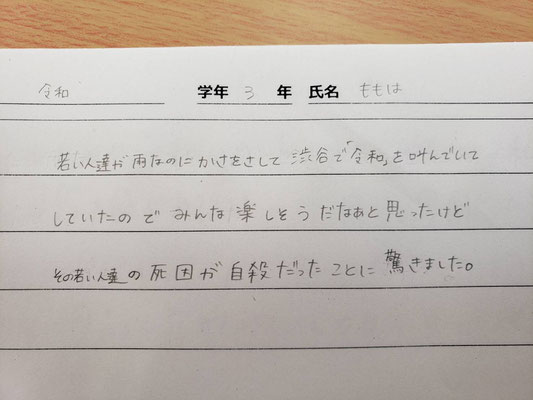 令和 学年 3 年 氏名 ももは
若い人達が雨なのにかさをさして渋谷で「令和」を叫んでいて
していたのでみんな楽しそうだなぁと思ったけど
その若い人達の死因が自殺だったことに驚きました。